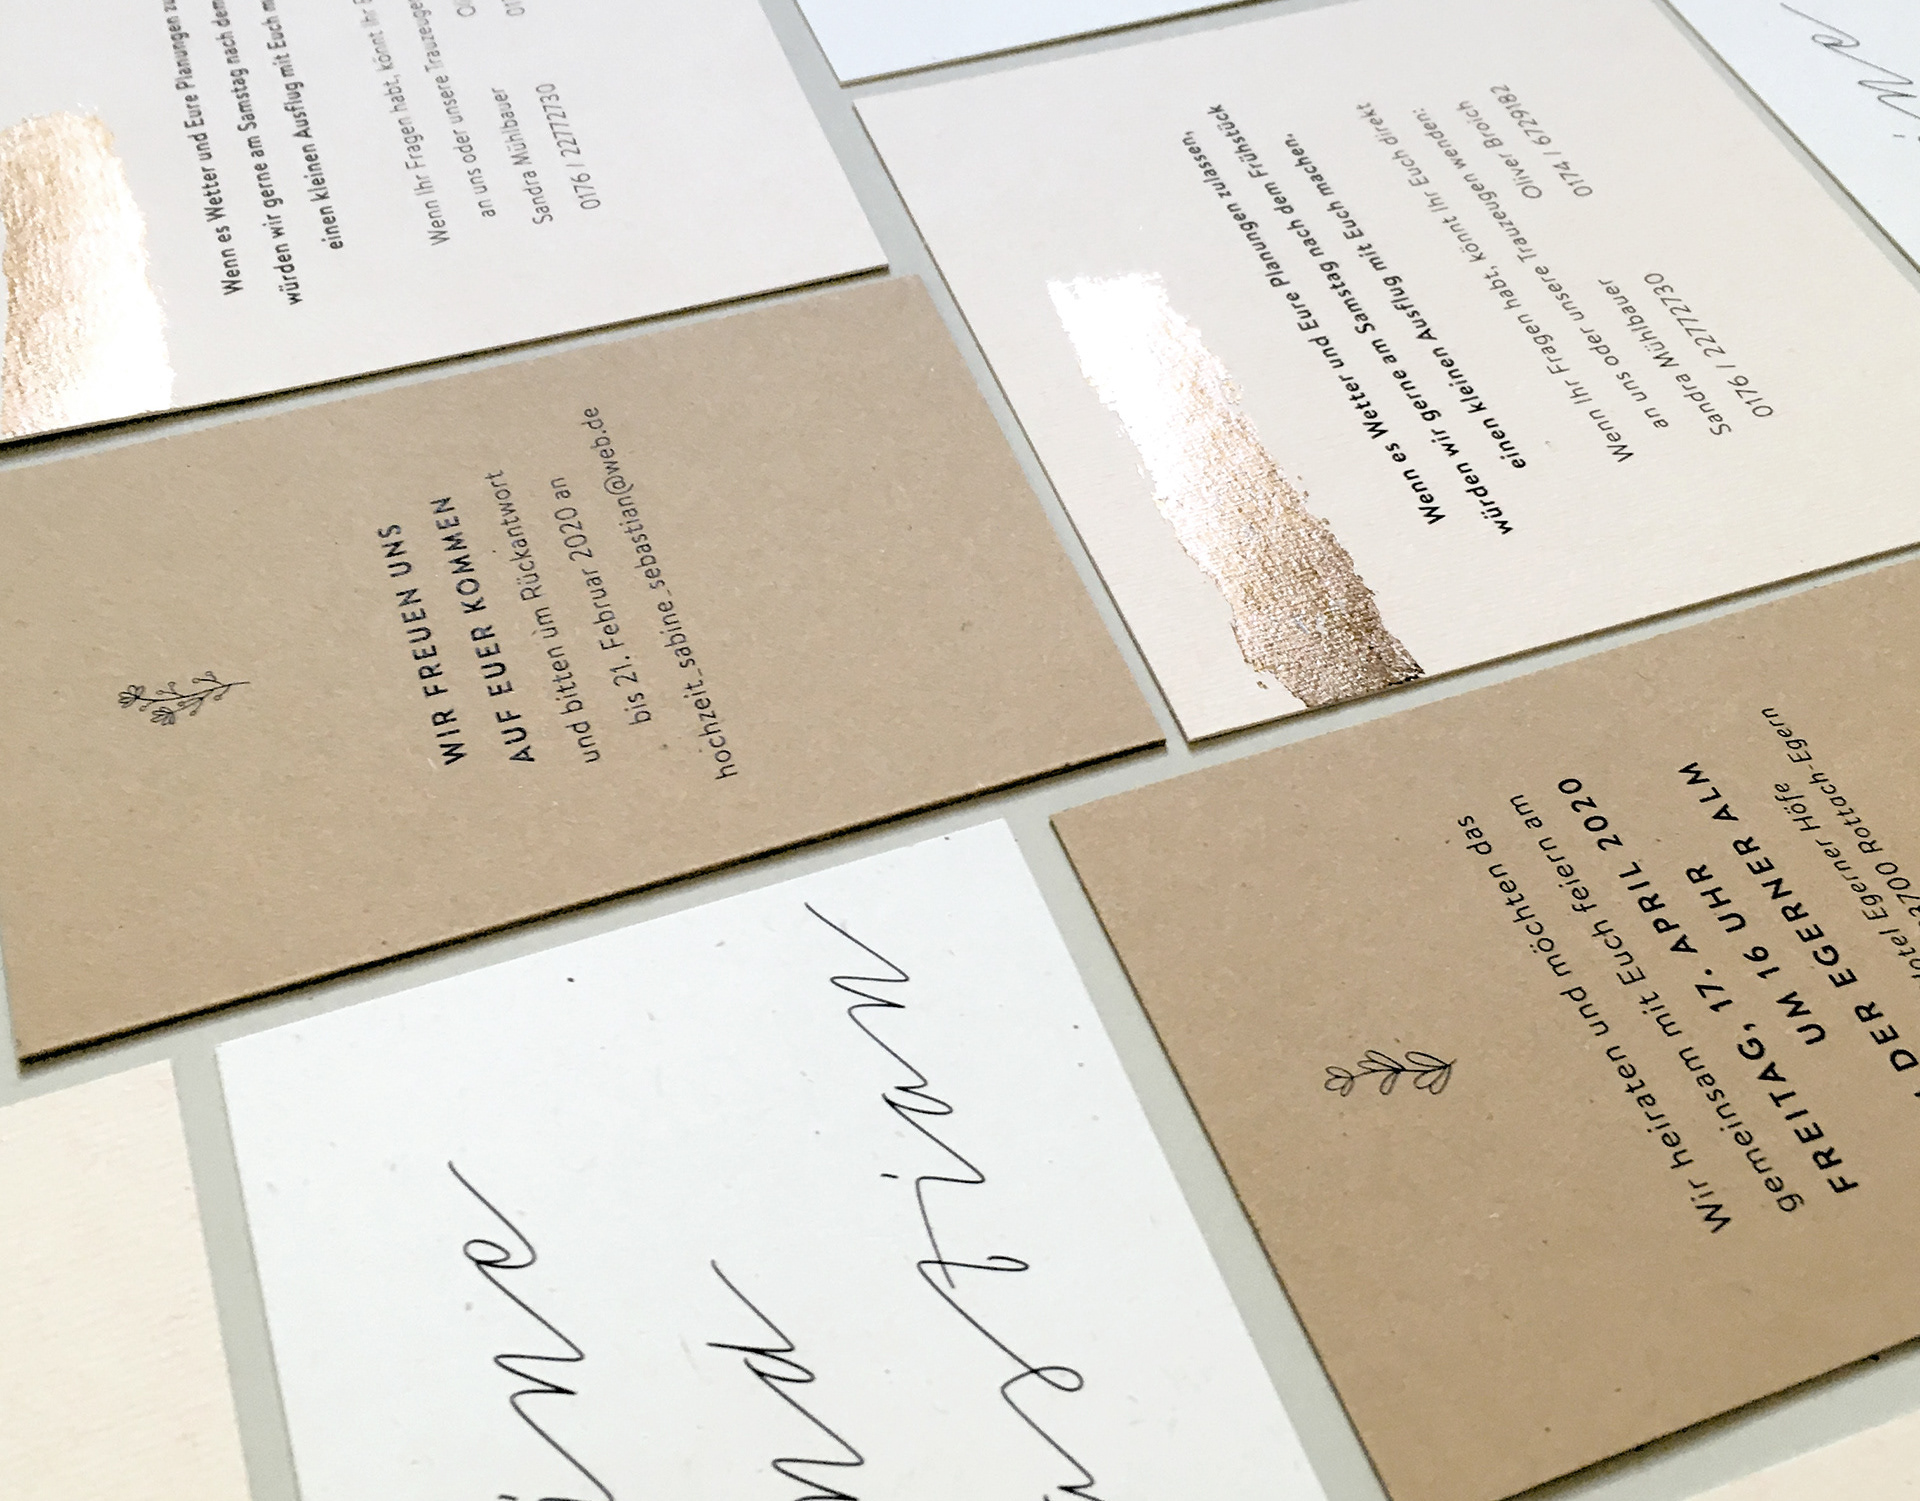 Wenn es Wetter und Eure Planungen
würden wir gerne am Samstag nach dem
einen kleinen Ausflug mit Euch
Wenn Ihr Fragen habt, könnt Ihr
an uns oder unsere Trauzeugen
Sandra Mühlbauer
0176 / 22772730
Wenn es Wetter und Eure Planungen zulassen,
würden wir gerne am Samstag nach dem Frühstück
einen kleinen Ausflug mit Euch machen.
Wenn Ihr Fragen habt, könnt Ihr Euch direkt
an uns oder unsere Trauzeugen wenden:
Sandra Mühlbauer Oliver Broich
0176 / 22772730 0174 / 6729182
WIR FREUEN UNS
AUF EUER KOMMEN
und bitten um Rückantwort
bis 21. Februar 2020 an
hochzeit_sabine_sebastian@web.de
Wir heiraten und möchten das
gemeinsam mit Euch feiern am
FREITAG, 17. APRIL 2020
UM 16 UHR
DER EGERNER ALM
Hotel Egerner Höfe
83700 Rottach-Egern
ine
nd
stian